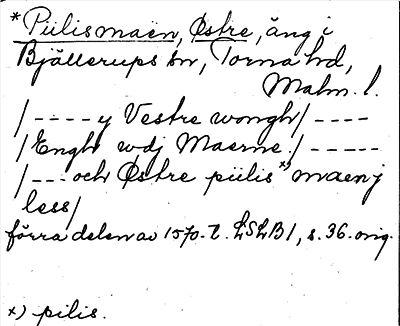 *Piilismaen, Østre, äng i
Bjällerups sn, Torna hd,
Malm. l.
/ - - - - y Vestre wongh / - - - -
/ Engh wdj Maerne. / - - - - -
/ - - - och Østre piilis x) maenj
less /
förra delen av 1570-t. LSLB 1, s. 36. orig.
x) pilis.